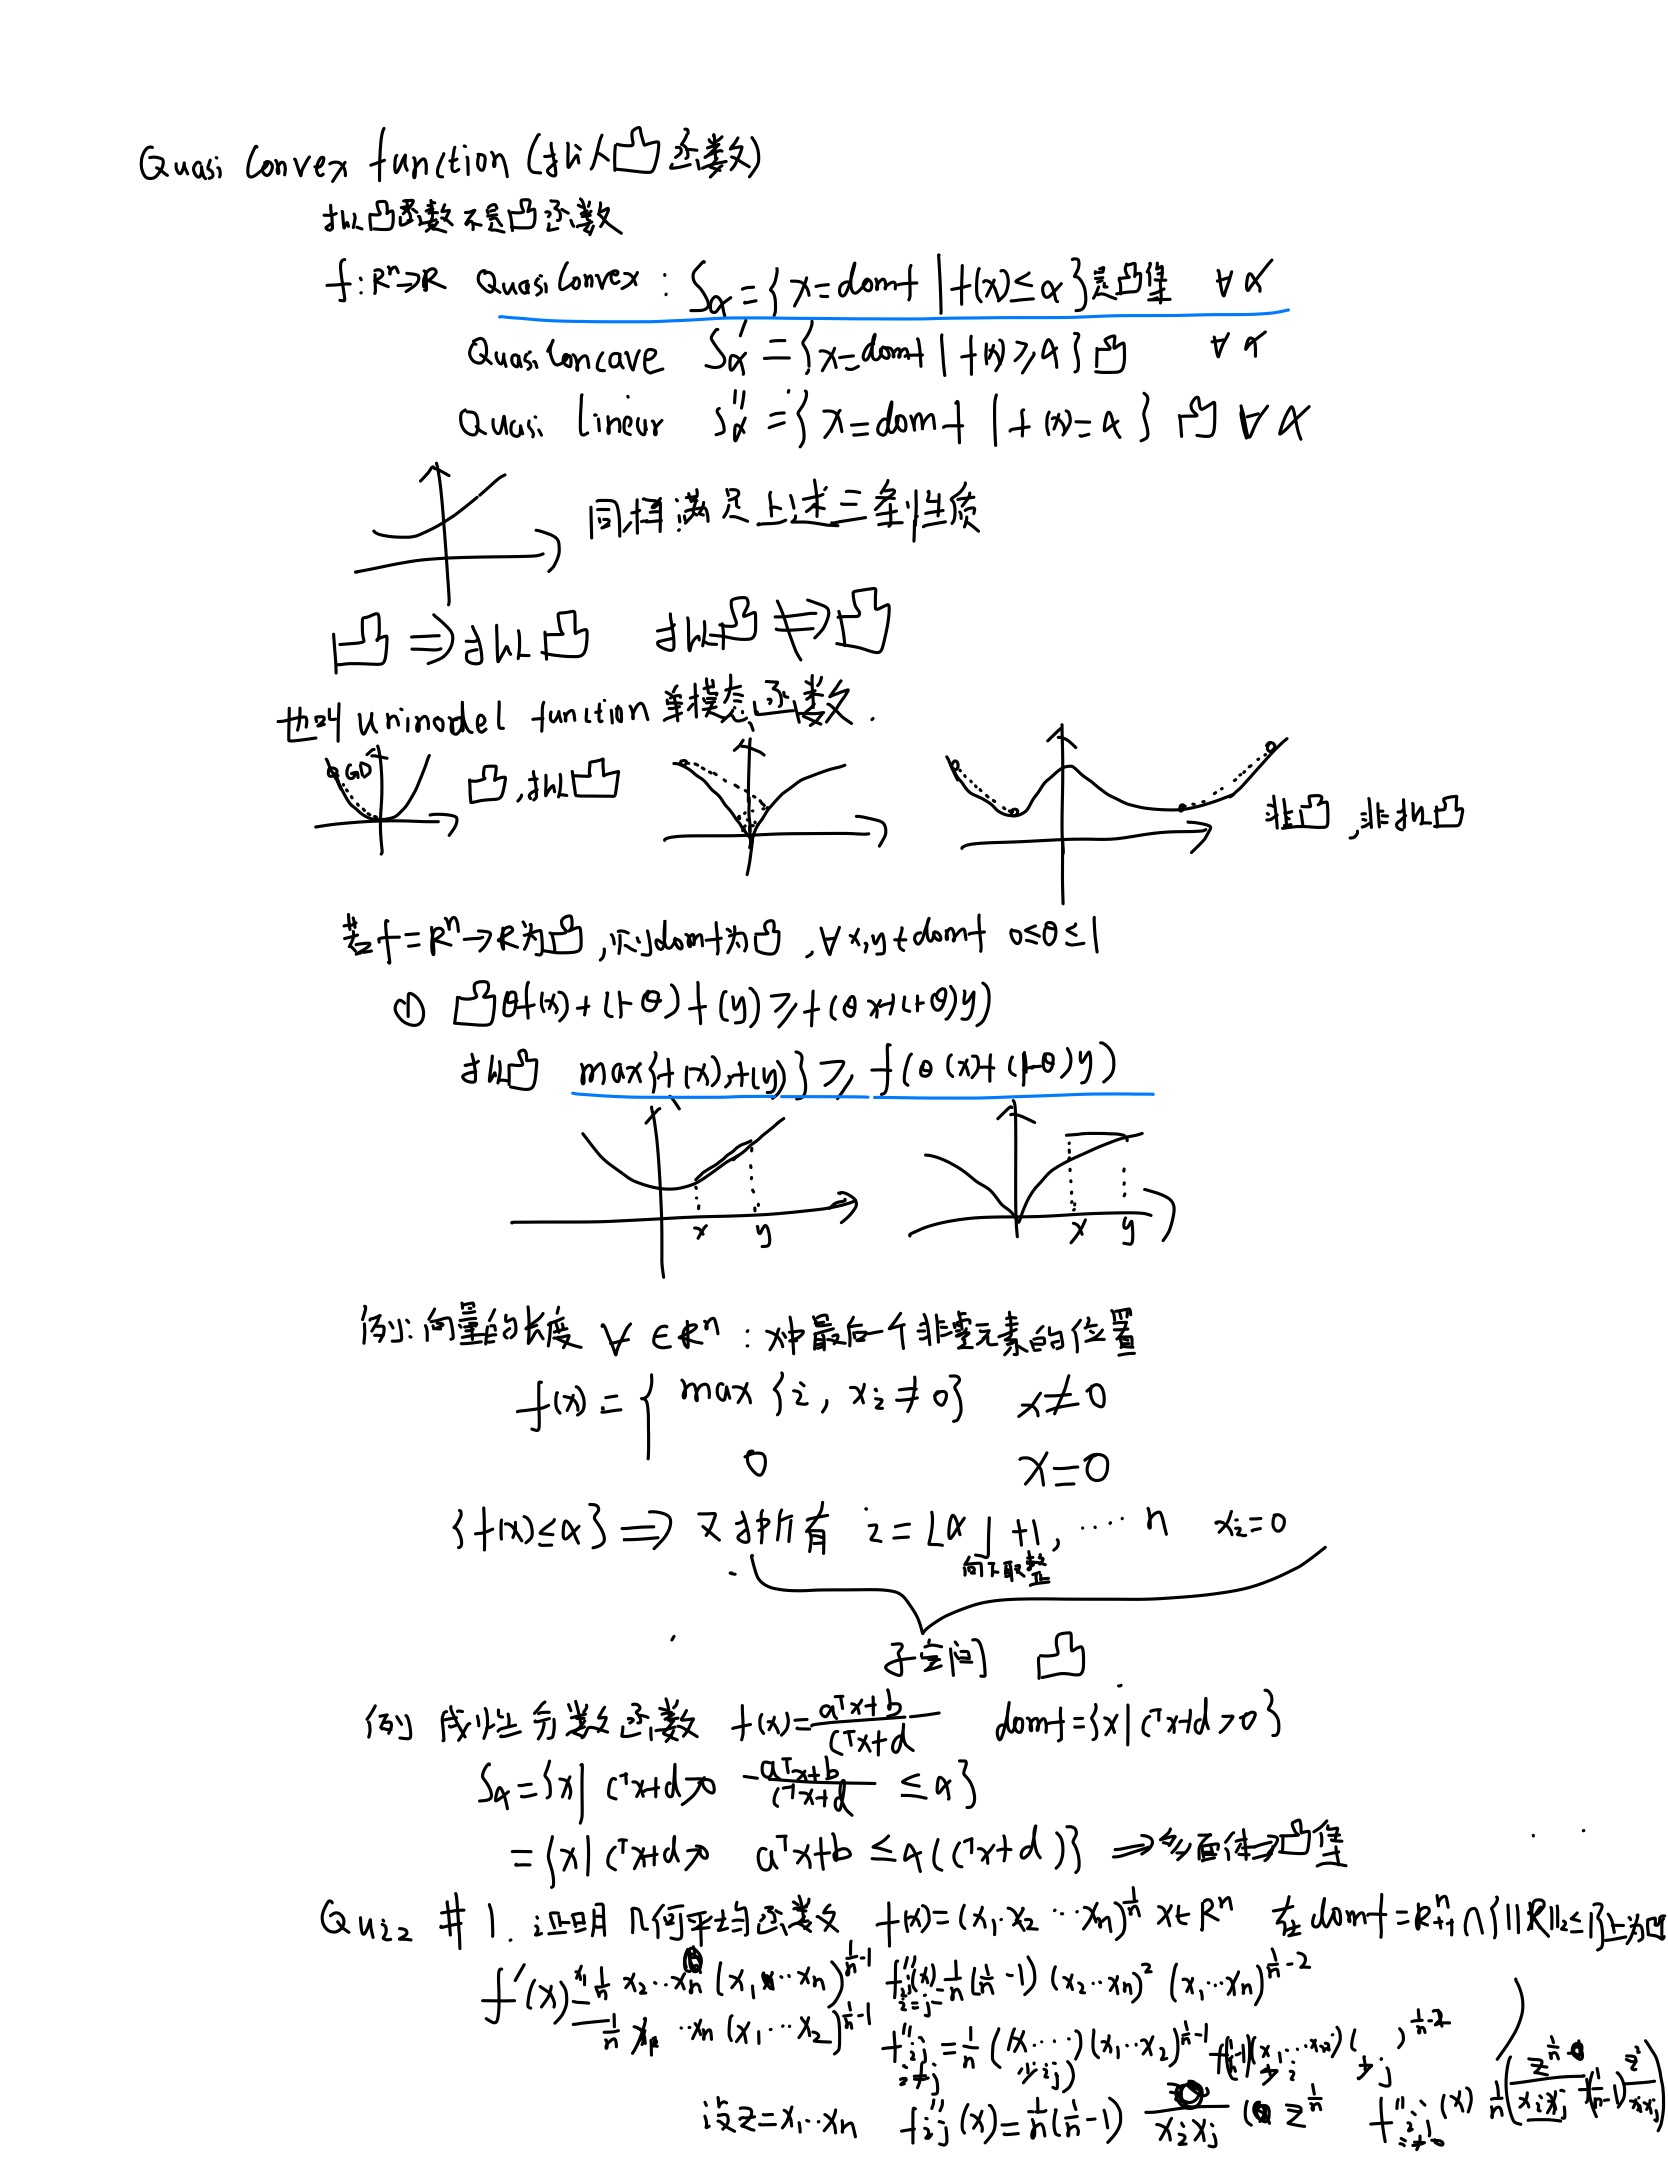 Quasi Convex function (拟人凸函数)
拟凸函数不是凸函数
f:Rⁿ→R Quasi Convex : Sα={x=domf|f(x)≤α}是凸集 ∀α
Quasi Concave Sα'={x=domf|f(x)≥α}凸 ∀α
Quasi Linear Sα''={x=domf|f(x)=α} 凸 ∀α
同样满足上述三条性质
凸⇒拟凸 拟凸⇏凸
也叫 unimodel function 单模态函数.
GD 凸,拟凸
非凸,非拟凸
若f=Rⁿ→R为凸,则domf为凸,∀x,y∈domf 0≤θ≤1
① 凸θf(x)+(1-θ)f(y)≥f(θx+(1-θ)y)
拟凸 max{f(x),f(y)}≥f(θ(x)+(1-θ)y)
x y x y
例:向量的长度 ∀∈Rⁿ:x中最后一个非零元素的位置
f(x)={ max{i, xᵢ≠0} x≠0
0 x=0
{f(x)≤α}⇒ 对所有 i=⌊α⌋+1,⋯n xᵢ=0
向下取整
子空间 凸
例 线性分数函数 f(x)=(aᵀx+b)/(cᵀx+d) domf={x|cᵀx+d>0}
Sα={x|cᵀx+d>0 (aᵀx+b)/(cᵀx+d)≤α}
={x|cᵀx+d>0 aᵀx+b≤α(cᵀx+d)}⇒多面体⇒凸集
Quiz #1. 证明几何平均函数 f(x)=(x₁·x₂⋯xₙ)^(1/n) x∈Rⁿ 在domf=Rⁿ₊₊∩{||R||₂≤1}上为凹
f'(x)= 1/n x₂⋯xₙ(x₁⋯xₙ)^(1/n-1) f''ᵢⱼ(x)=1/n(1/n-1)(x₂⋯xₙ)²(x₁⋯xₙ)^(1/n-2)
i=j
1/n ⋯xₙ(x₁⋯x₂)^(1/n-1) f''ᵢⱼ=1/n(x⋯)(x₁⋯x₂)^(1/n-1)
i≠j
设z=x₁⋯xₙ f''ᵢⱼ(x)=1/n(1/n-1) /xᵢxⱼ z^(1/n) f''ᵢⱼ(x)